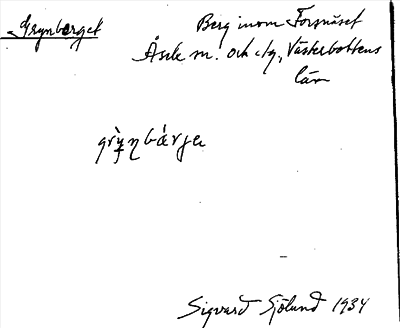 Grynberget
Berg inom Forsnäset
Åsele m. och sg, Västerbottens
län
grỳnbærjə
Sigvard Sjölund 1934